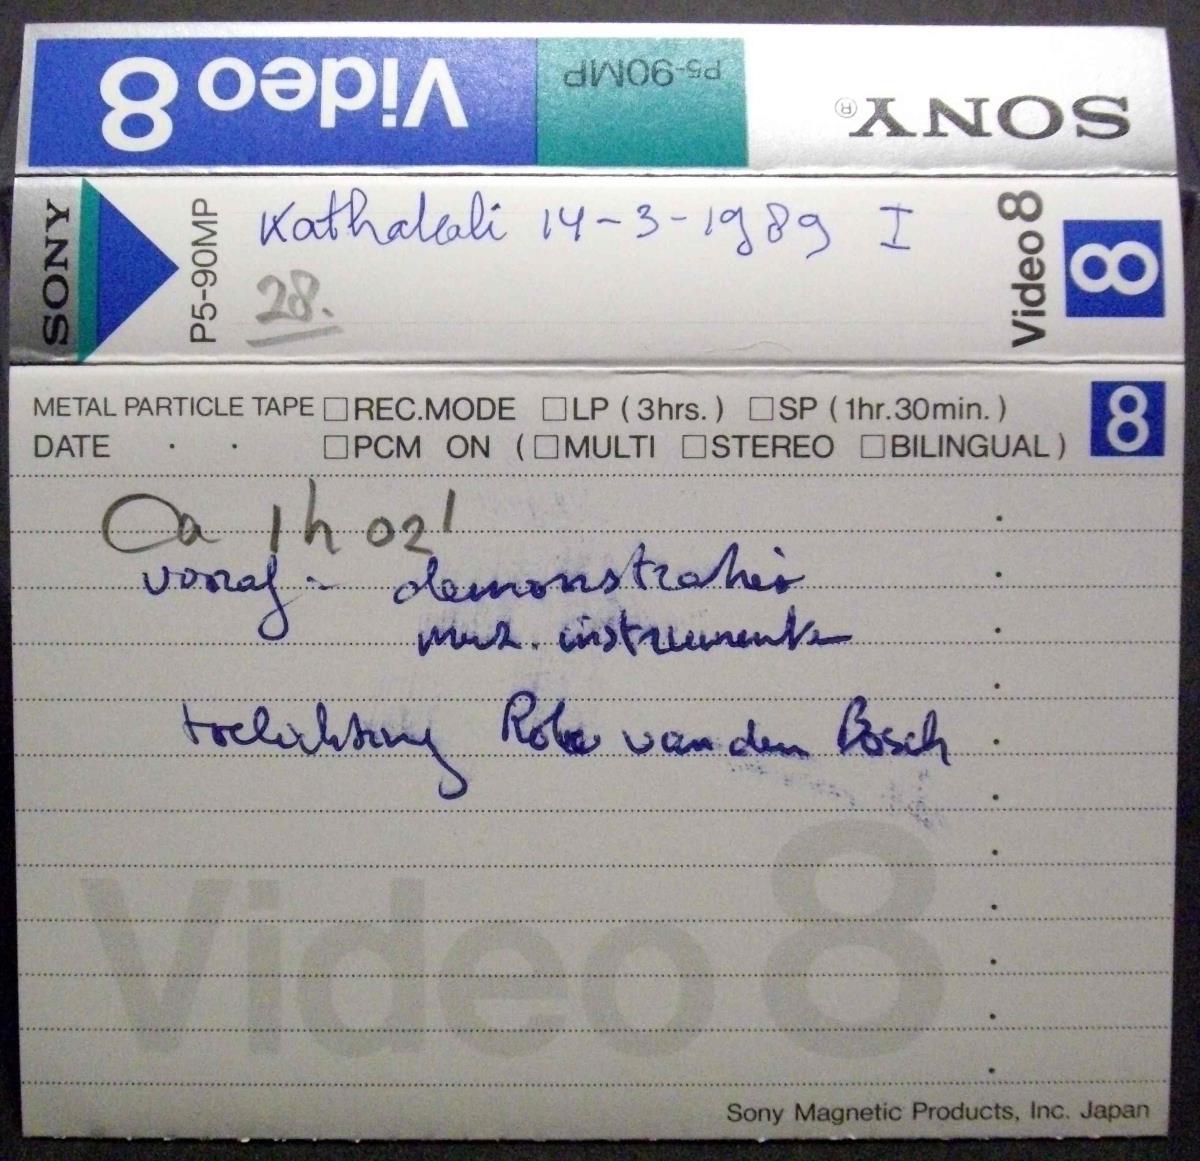 Video 8 P5-90MP SONY®
SONY P5-90MP Kathakali 14-3-1989 I Video 8 8
28.
METAL PARTICLE TAPE □REC.MODE □LP (3hrs.) □SP (1hr.30min.) 8
DATE . . □PCM ON (□MULTI □STEREO □BILINGUAL)
Ca 1h 02'
vooraf - demonstratie
muz. instrumenten
toelichting van den Bosch
Video 8
Sony Magnetic Products, Inc. Japan